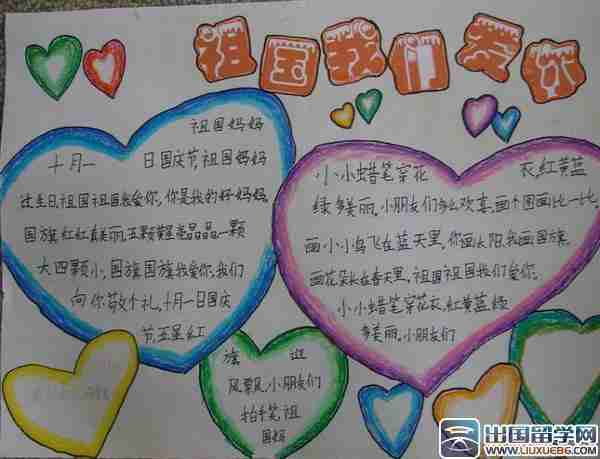 祖国我们爱你
祖国妈妈
十月一 日国庆节,祖国妈妈
过生日祖国祖国我爱你,你是我的好妈妈,
国旗红红真美丽,五颗黄星亮晶晶一颗
大四颗小,国旗国旗我爱你.我们
向你敬个礼,十月一日国庆
节,五星红
小小蜡笔穿花 衣,红黄蓝
绿多美丽,小朋友们多么欢喜,画个图画比一比,
画小小鸟飞在蓝天里,你画太阳,我画国旗,
画花朵长在春天里,祖国祖国我们爱你.
小小蜡笔穿花衣,红黄蓝绿
多美丽,小朋友们
旗 迎
风飘风小朋友们
拍手笑祖
国妈
出国留学网
WWW.LIUXUE86.COM